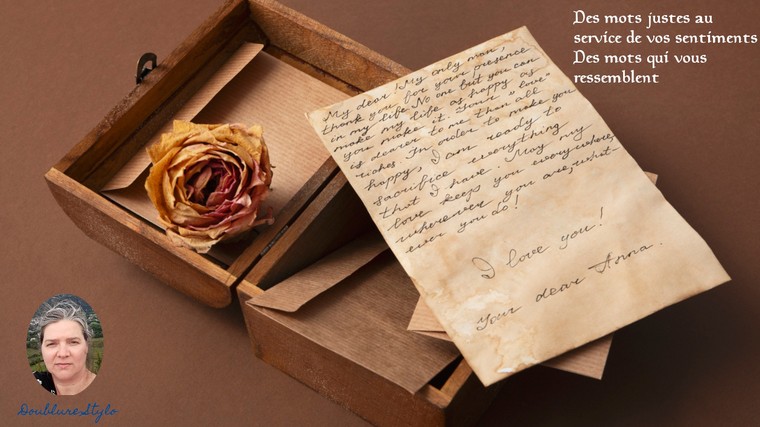 Des mots justes au
service de vos sentiments
Des mots qui vous
ressemblent
My dear! My only man,
thank you for your presence
in my life. No one but you can
make my life as happy as
you make it. Your "love"
is dearer to me than all
riches. In order to make you
happy, I am ready to
sacrifice everything
that I have. May my
love keeps you everywhere,
wherever you are, what-
ever you do!
I love you!
Your dear Anna.
DoublureStylo